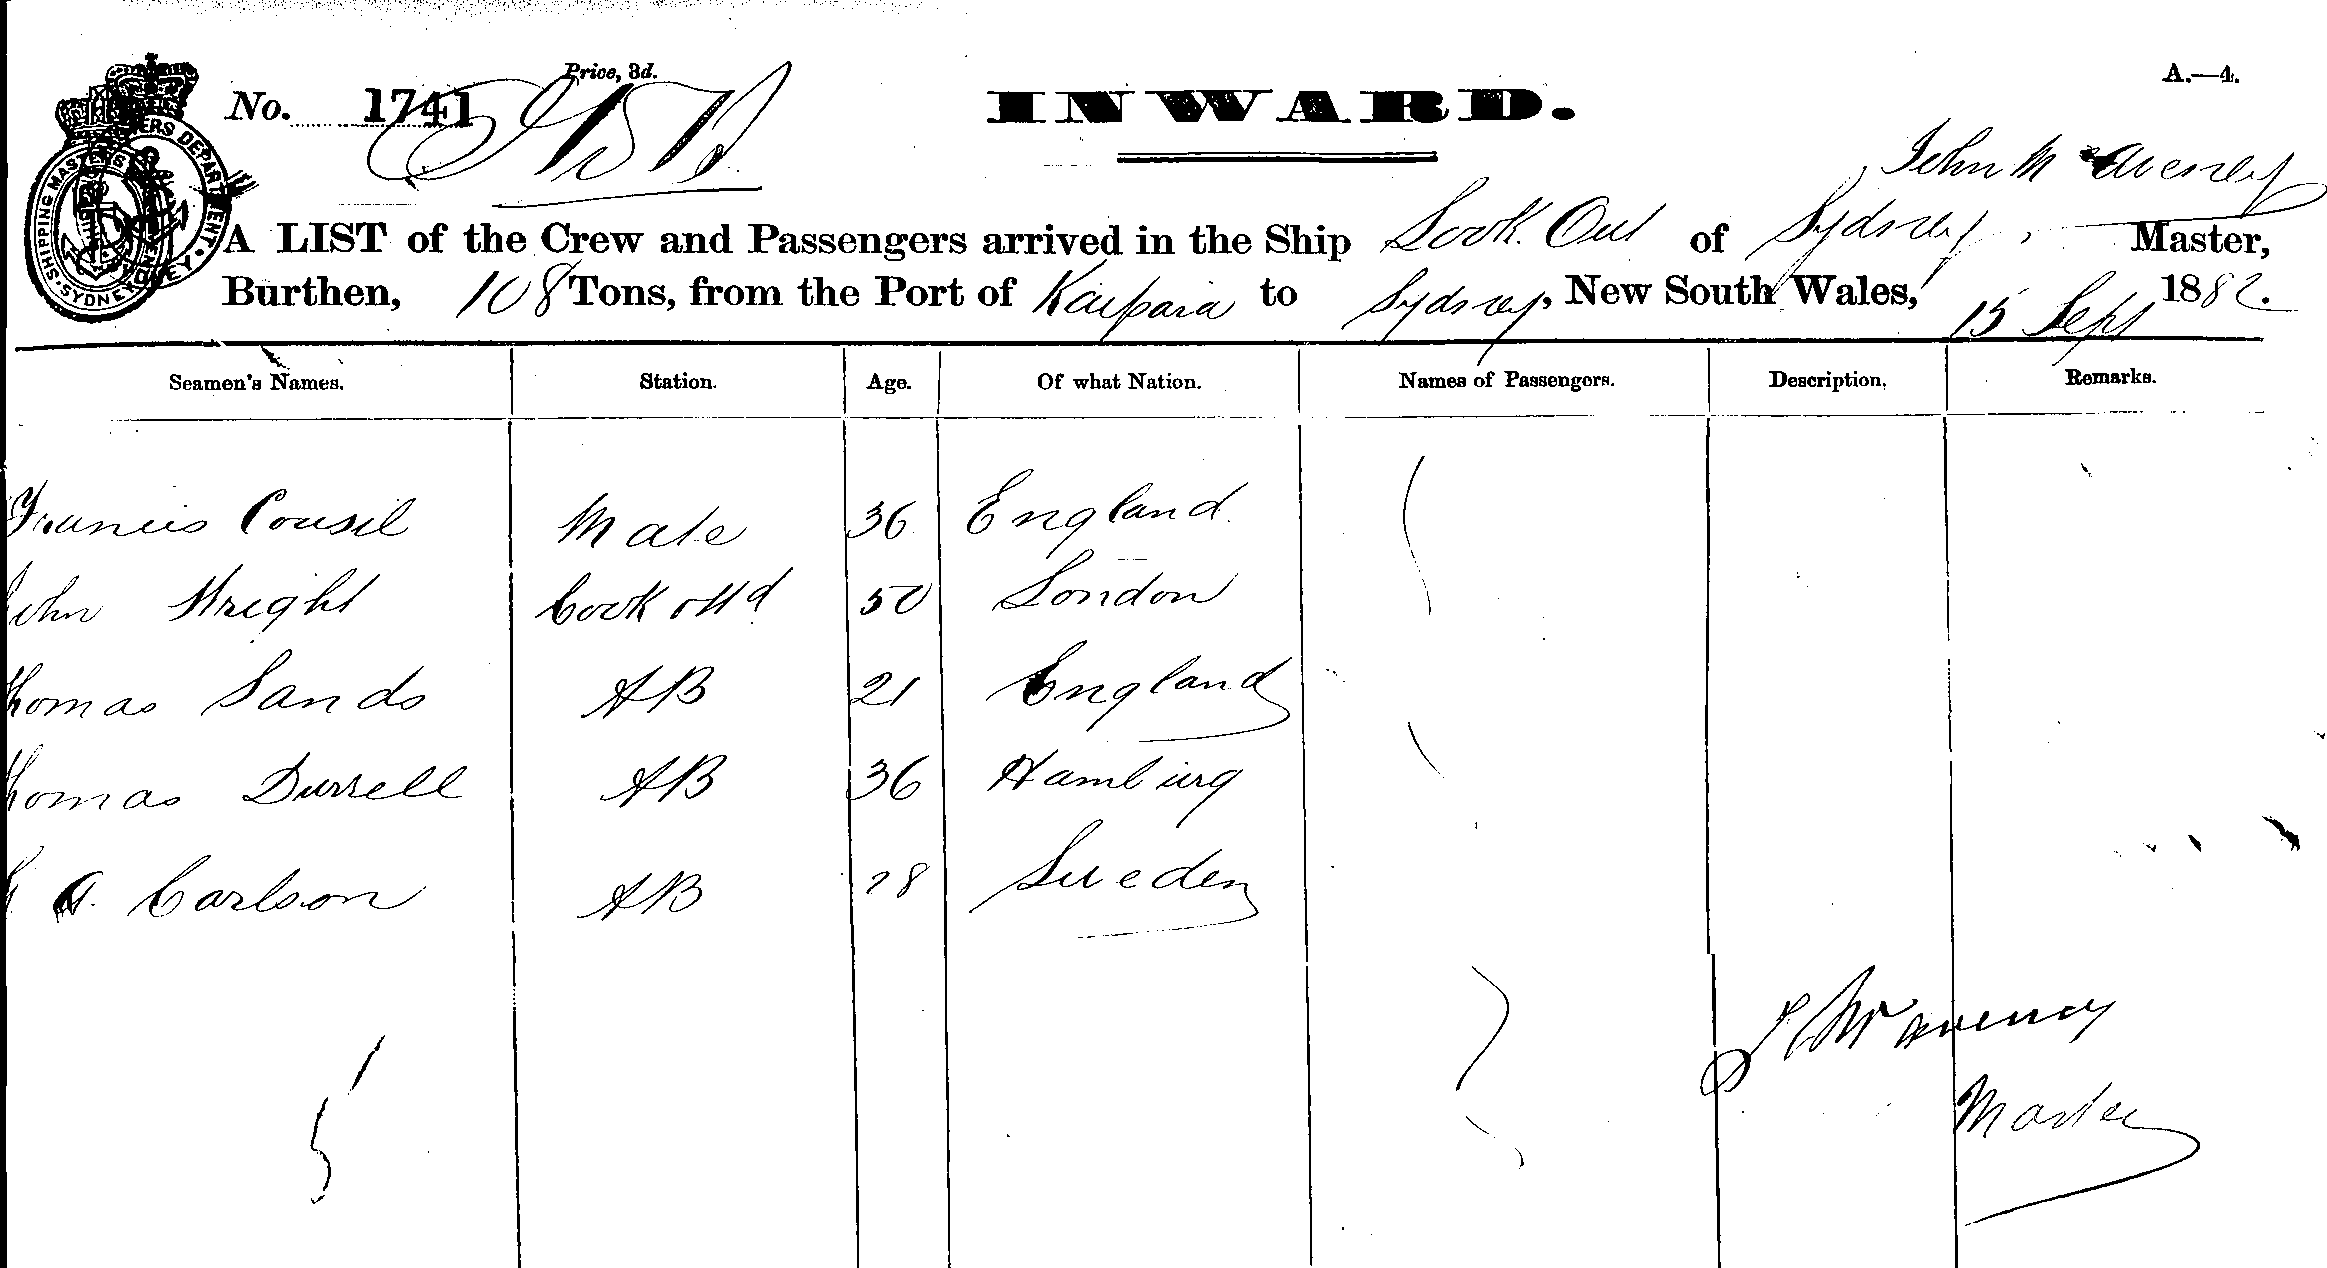 Price, 3d.
A.—4.
No. 1741
INWARD.
SHIPPING MASTERS DEPARTMENT · SYDNEY ·
John McAvenay
A LIST of the Crew and Passengers arrived in the Ship Look Out of Sydney, Master,
Burthen, 108 Tons, from the Port of Kaipara to Sydney, New South Wales, 15 Sept 1882.
Seamen's Names. Station. Age. Of what Nation. Names of Passengers. Description. Remarks.
Francis Cousil Mate 36 England
John Wright Cook & Std 50 London
Thomas Sands AB 21 England
Thomas Durrell AB 36 Hamburg
A. Carlson AB 28 Sweden
J McAvenay
Master